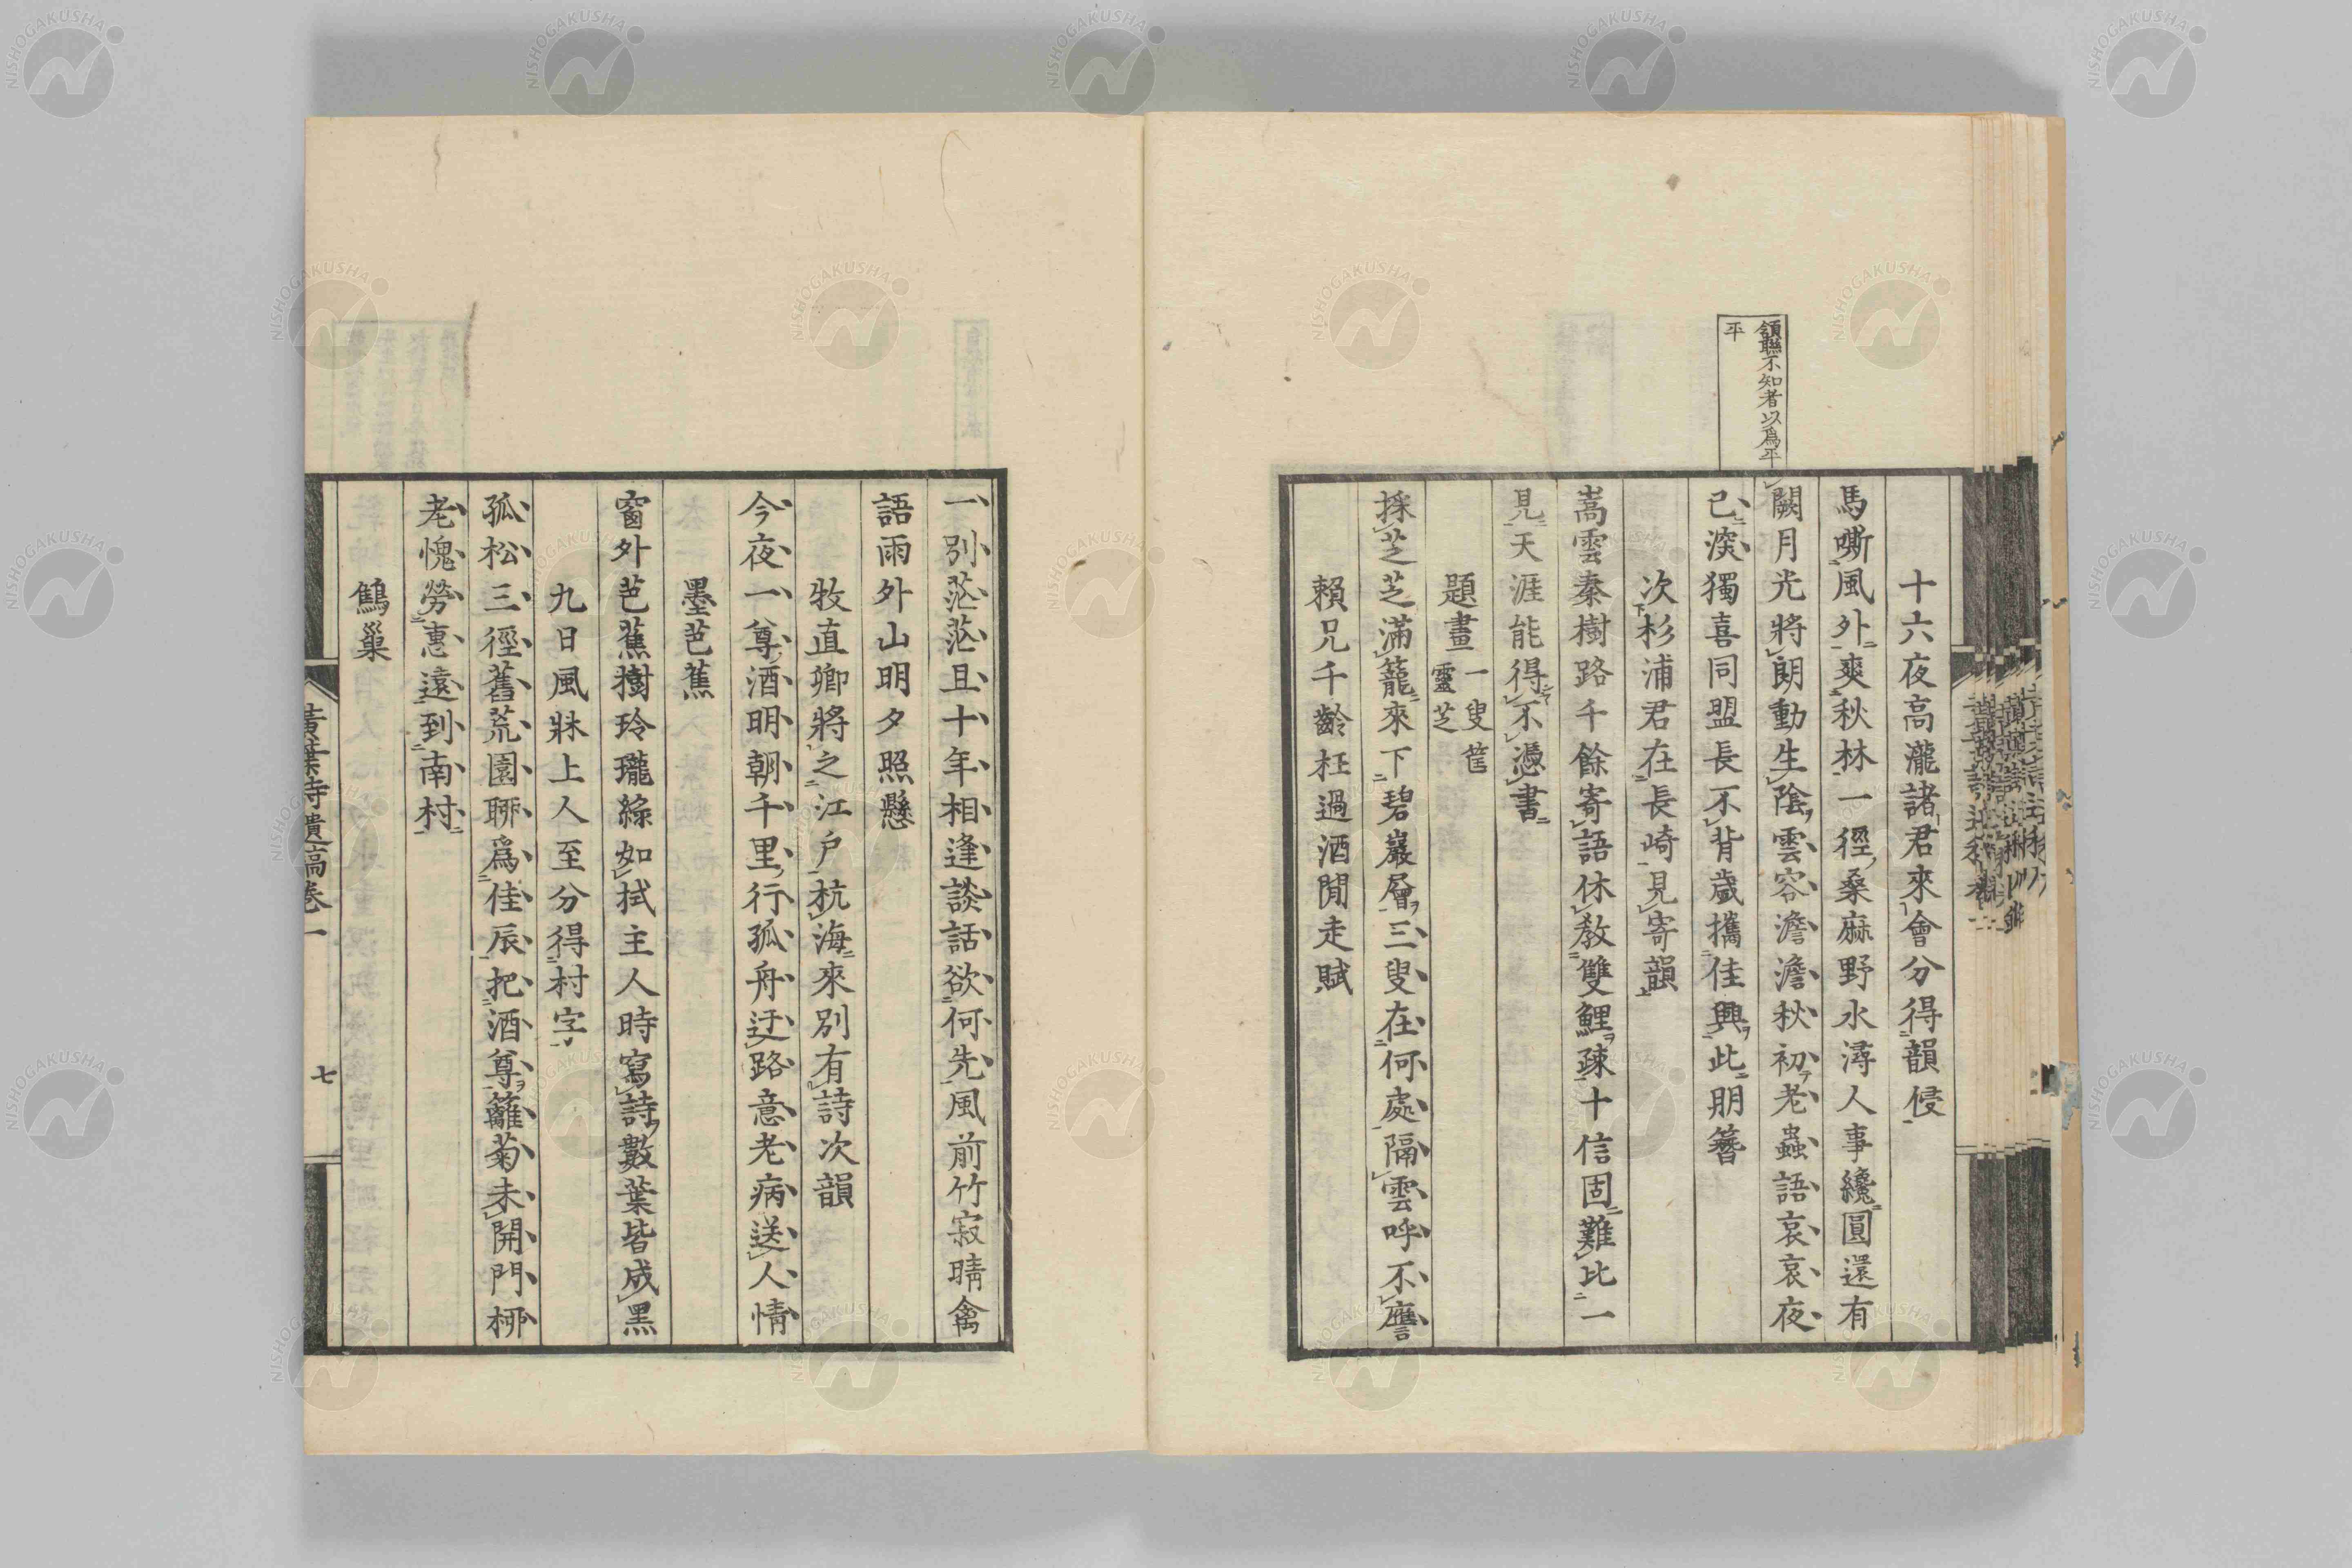 頷聯不知者以爲平
平
十六夜高瀧諸君來會分得韻侵
馬嘶風外爽秋林一徑桑麻野水潯人事纔圓還有
闕月光將朗動生陰雲容澹澹秋初老蟲語哀哀夜
已深獨喜同盟長不背歲攜佳興此朋簪
次杉浦君在長崎見寄韻
嵩雲秦樹路千餘寄語休教雙鯉疎十信固難比一
見天涯能得不憑書
題畫一叟筐
靈芝
採芝芝滿籠來下碧巖層三叟在何處隔雲呼不譍
賴兄千齡枉過酒閒走賦
一別茫茫且十年相逢談話欲何先風前竹寂晴禽
語雨外山明夕照懸
牧直卿將之江戶杭海來別有詩次韻
今夜一尊酒明朝千里行孤舟迂路意老病送人情
墨芭蕉
窗外芭蕉樹玲瓏綠如拭主人時寫詩數葉皆成黑
九日風牀上人至分得村字
孤松三徑舊荒園聊爲佳辰把酒尊籬菊未開門柳
老愧勞惠遠到南村
鷦巢
黃葉詩遺稿卷一
七
NISHOGAKUSHA